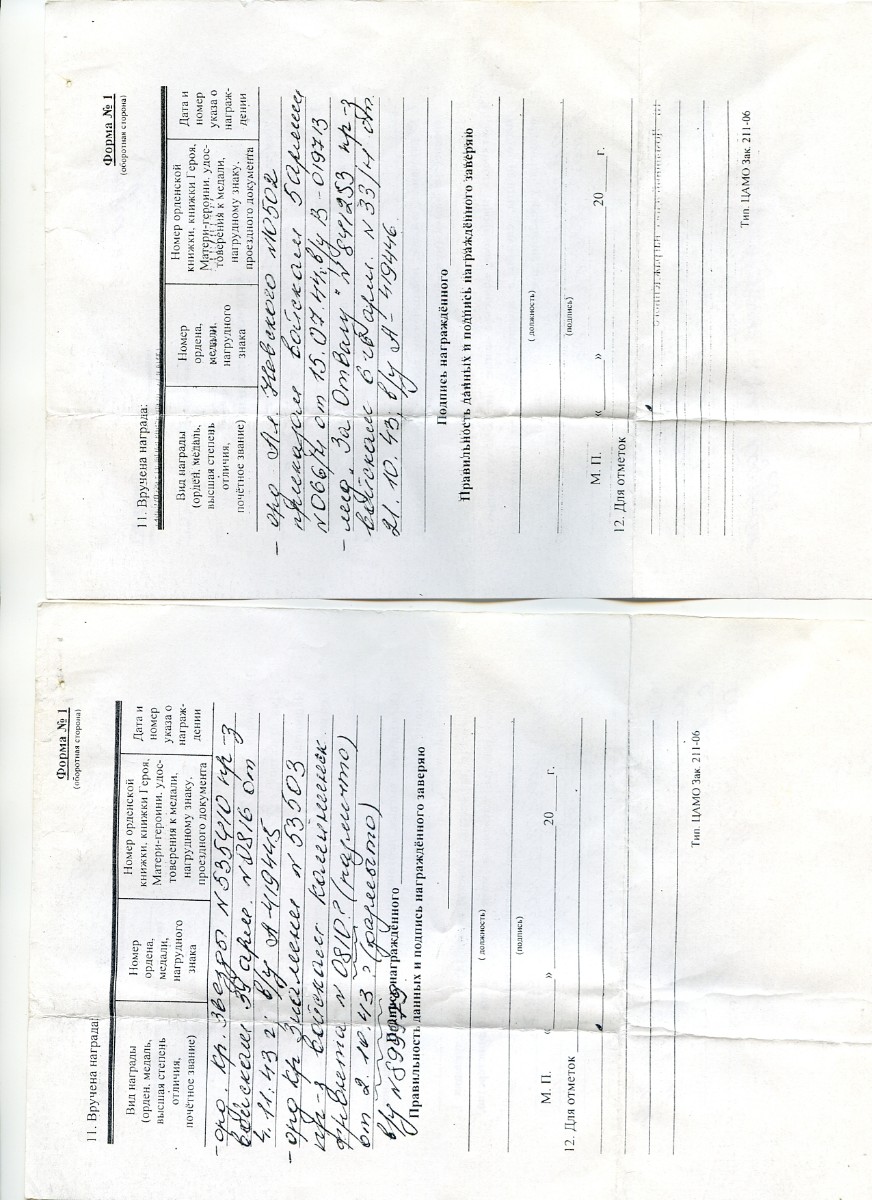 Форма № 1
(оборотная сторона)
11. Вручена награда:
Вид награды (орден, медаль, высшая степень отличия, почётное звание)
Номер ордена, медали, нагрудного знака
Номер орденской книжки, книжки Героя, Матери-героини, удостоверения к медали, нагрудному знаку, проездного документа
Дата и номер указа о награждении
- орд. Ал. Невского №10502
приказом войскам 5 армии
№066/н от 15.07.44, в/у В-019713
- мед. „За Отвагу" №841253 пр-з
войскам 6 гв. арм. №33/н от
21.10.43, в/у А-419446.
Подпись награждённого
Правильность данных и подпись награждённого заверяю
(должность)
(подпись)
М. П. « » 20 г.
12. Для отметок
Тип. ЦАМО Зак. 211-06
Форма № 1
(оборотная сторона)
11. Вручена награда:
Вид награды (орден, медаль, высшая степень отличия, почётное звание)
Номер ордена, медали, нагрудного знака
Номер орденской книжки, книжки Героя, Матери-героини, удостоверения к медали, нагрудному знаку, проездного документа
Дата и номер указа о награждении
- орд. Кр. Звезды №535410 пр-з
войскам арм. №0816 от
4.11.43 г. в/у А-419445
- орд. Кр. Знамени №53503
пр-з войскам Калининск.
фронта №0810?
от 2.10.43 ?
в/у
Подпись награждённого
Правильность данных и подпись награждённого заверяю
(должность)
(подпись)
М. П. « » 20 г.
12. Для отметок
Тип. ЦАМО Зак. 211-06